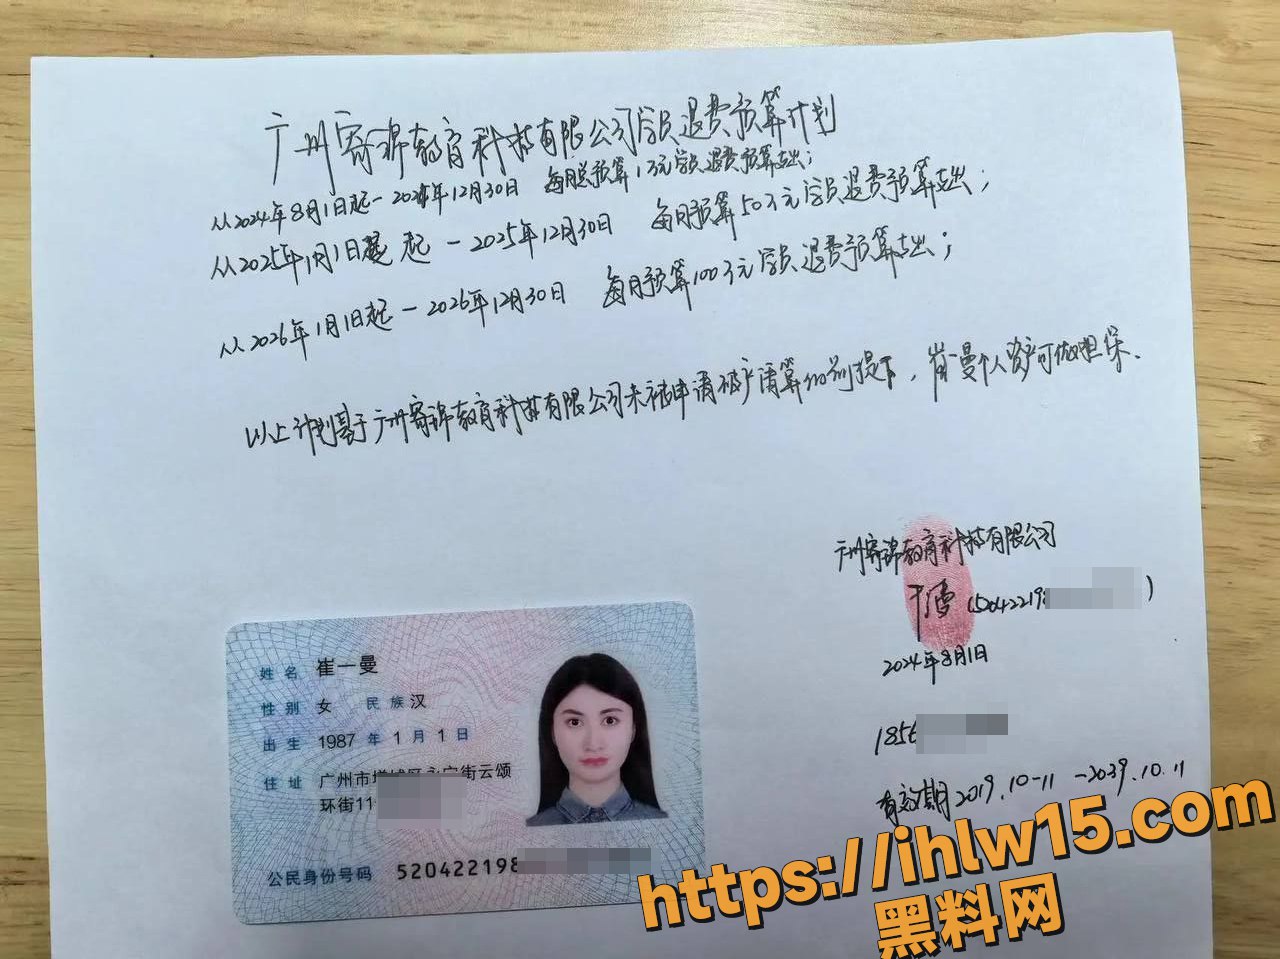 广州寄锦教育科技有限公司学员退费预算计划
从2024年8月1日起－2024年12月30日 每月总预算1万元学员退费预算支出；
从2025年1月1日 起－2025年12月30日 每月预算50万元学员退费预算支出；
从2026年1月1日起－2026年12月30日 每月预算100万元学员退费预算支出；
以上计划基于广州寄锦教育科技有限公司未被申请破产清算的前提下，崔一曼个人资产可做担保.
广州寄锦教育科技有限公司
(50422198 )
2024年8月1日
1856
有效期2019.10-11-2039.10.11
姓名 崔一曼
性别 女 民族 汉
出生 1987 年 1 月 1 日
住址 广州市增城区永宁街云颂
环街11
公民身份号码 520422198
https://ihlw15.com
黑料网